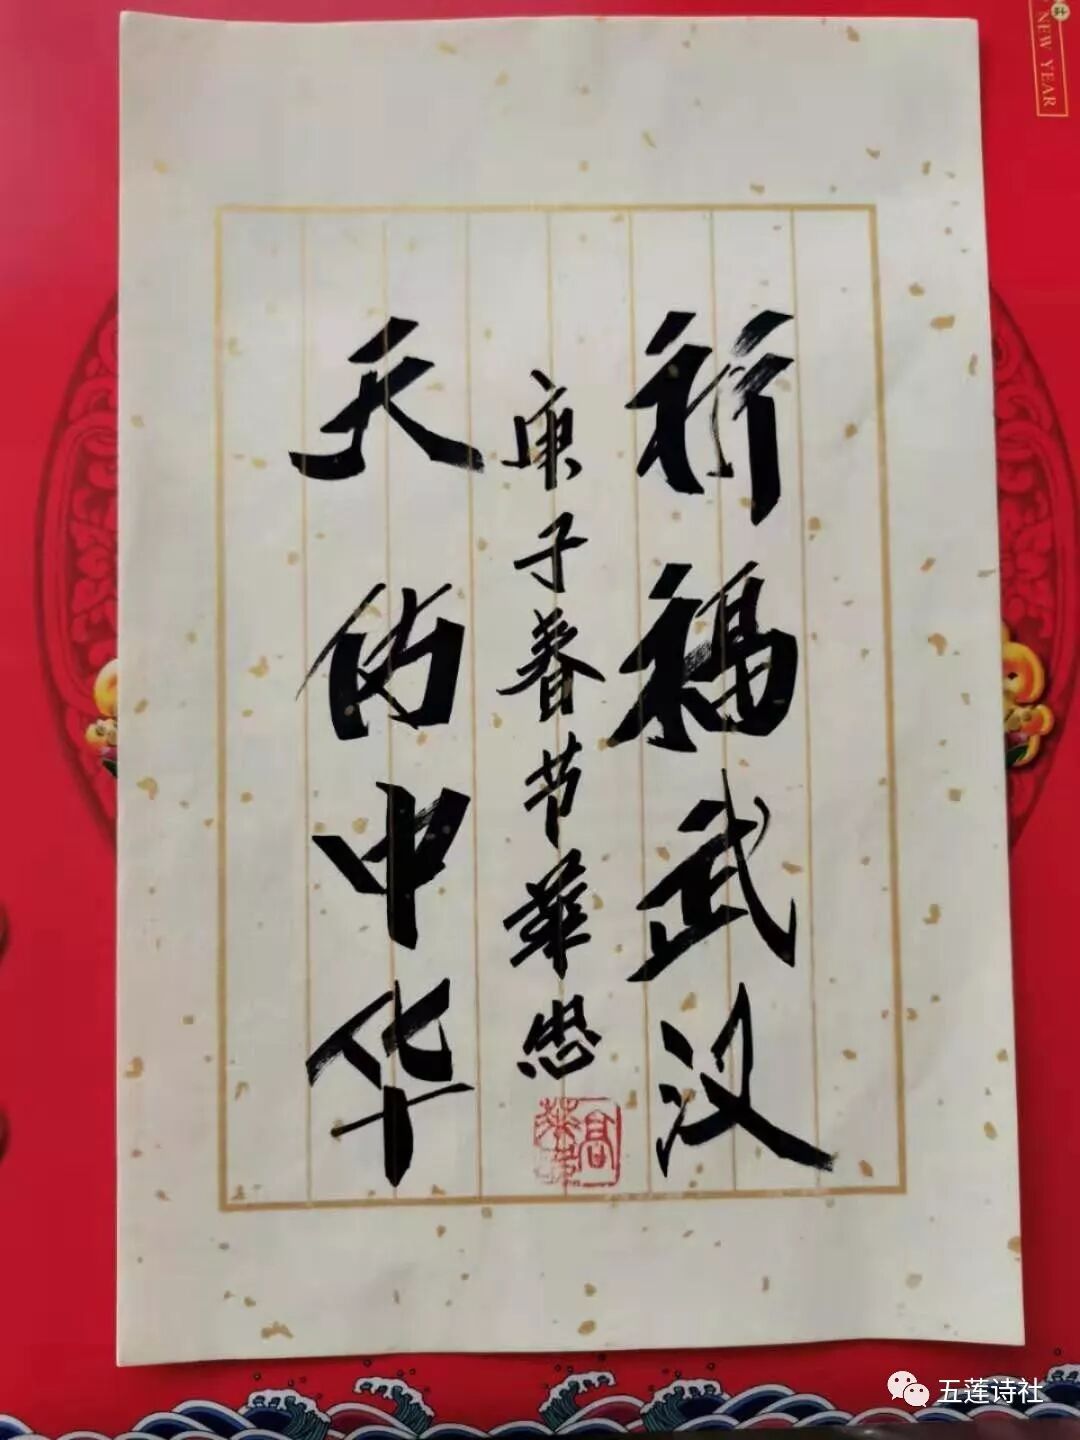 祈福武汉
天佑中华
庚子春节华忠
高
NEW YEAR
五莲诗社